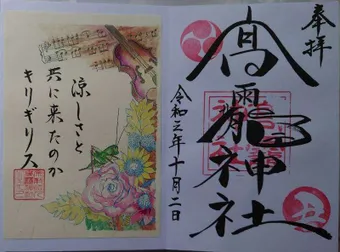 奉拝
高龗神社
令和三年十月二日
涼しさと
共に来たのか
キリギリス